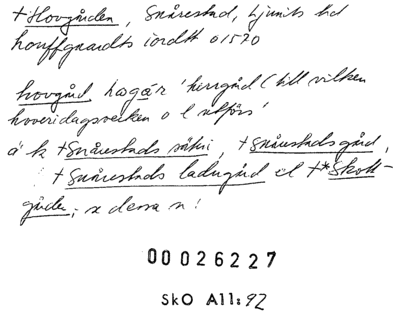 +Hovgården, Snårestad, Ljunits hd
houffgaardts iordtt o1570
hovgård hagår 'herrgård (till vilken
hoveridagsverken o l utförs'
å k +Snårestads säteri, +Snårestadsgård,
+Snårestads ladugård el +*Skott-
gården; x dessa n!
00026227
SkO All: 92